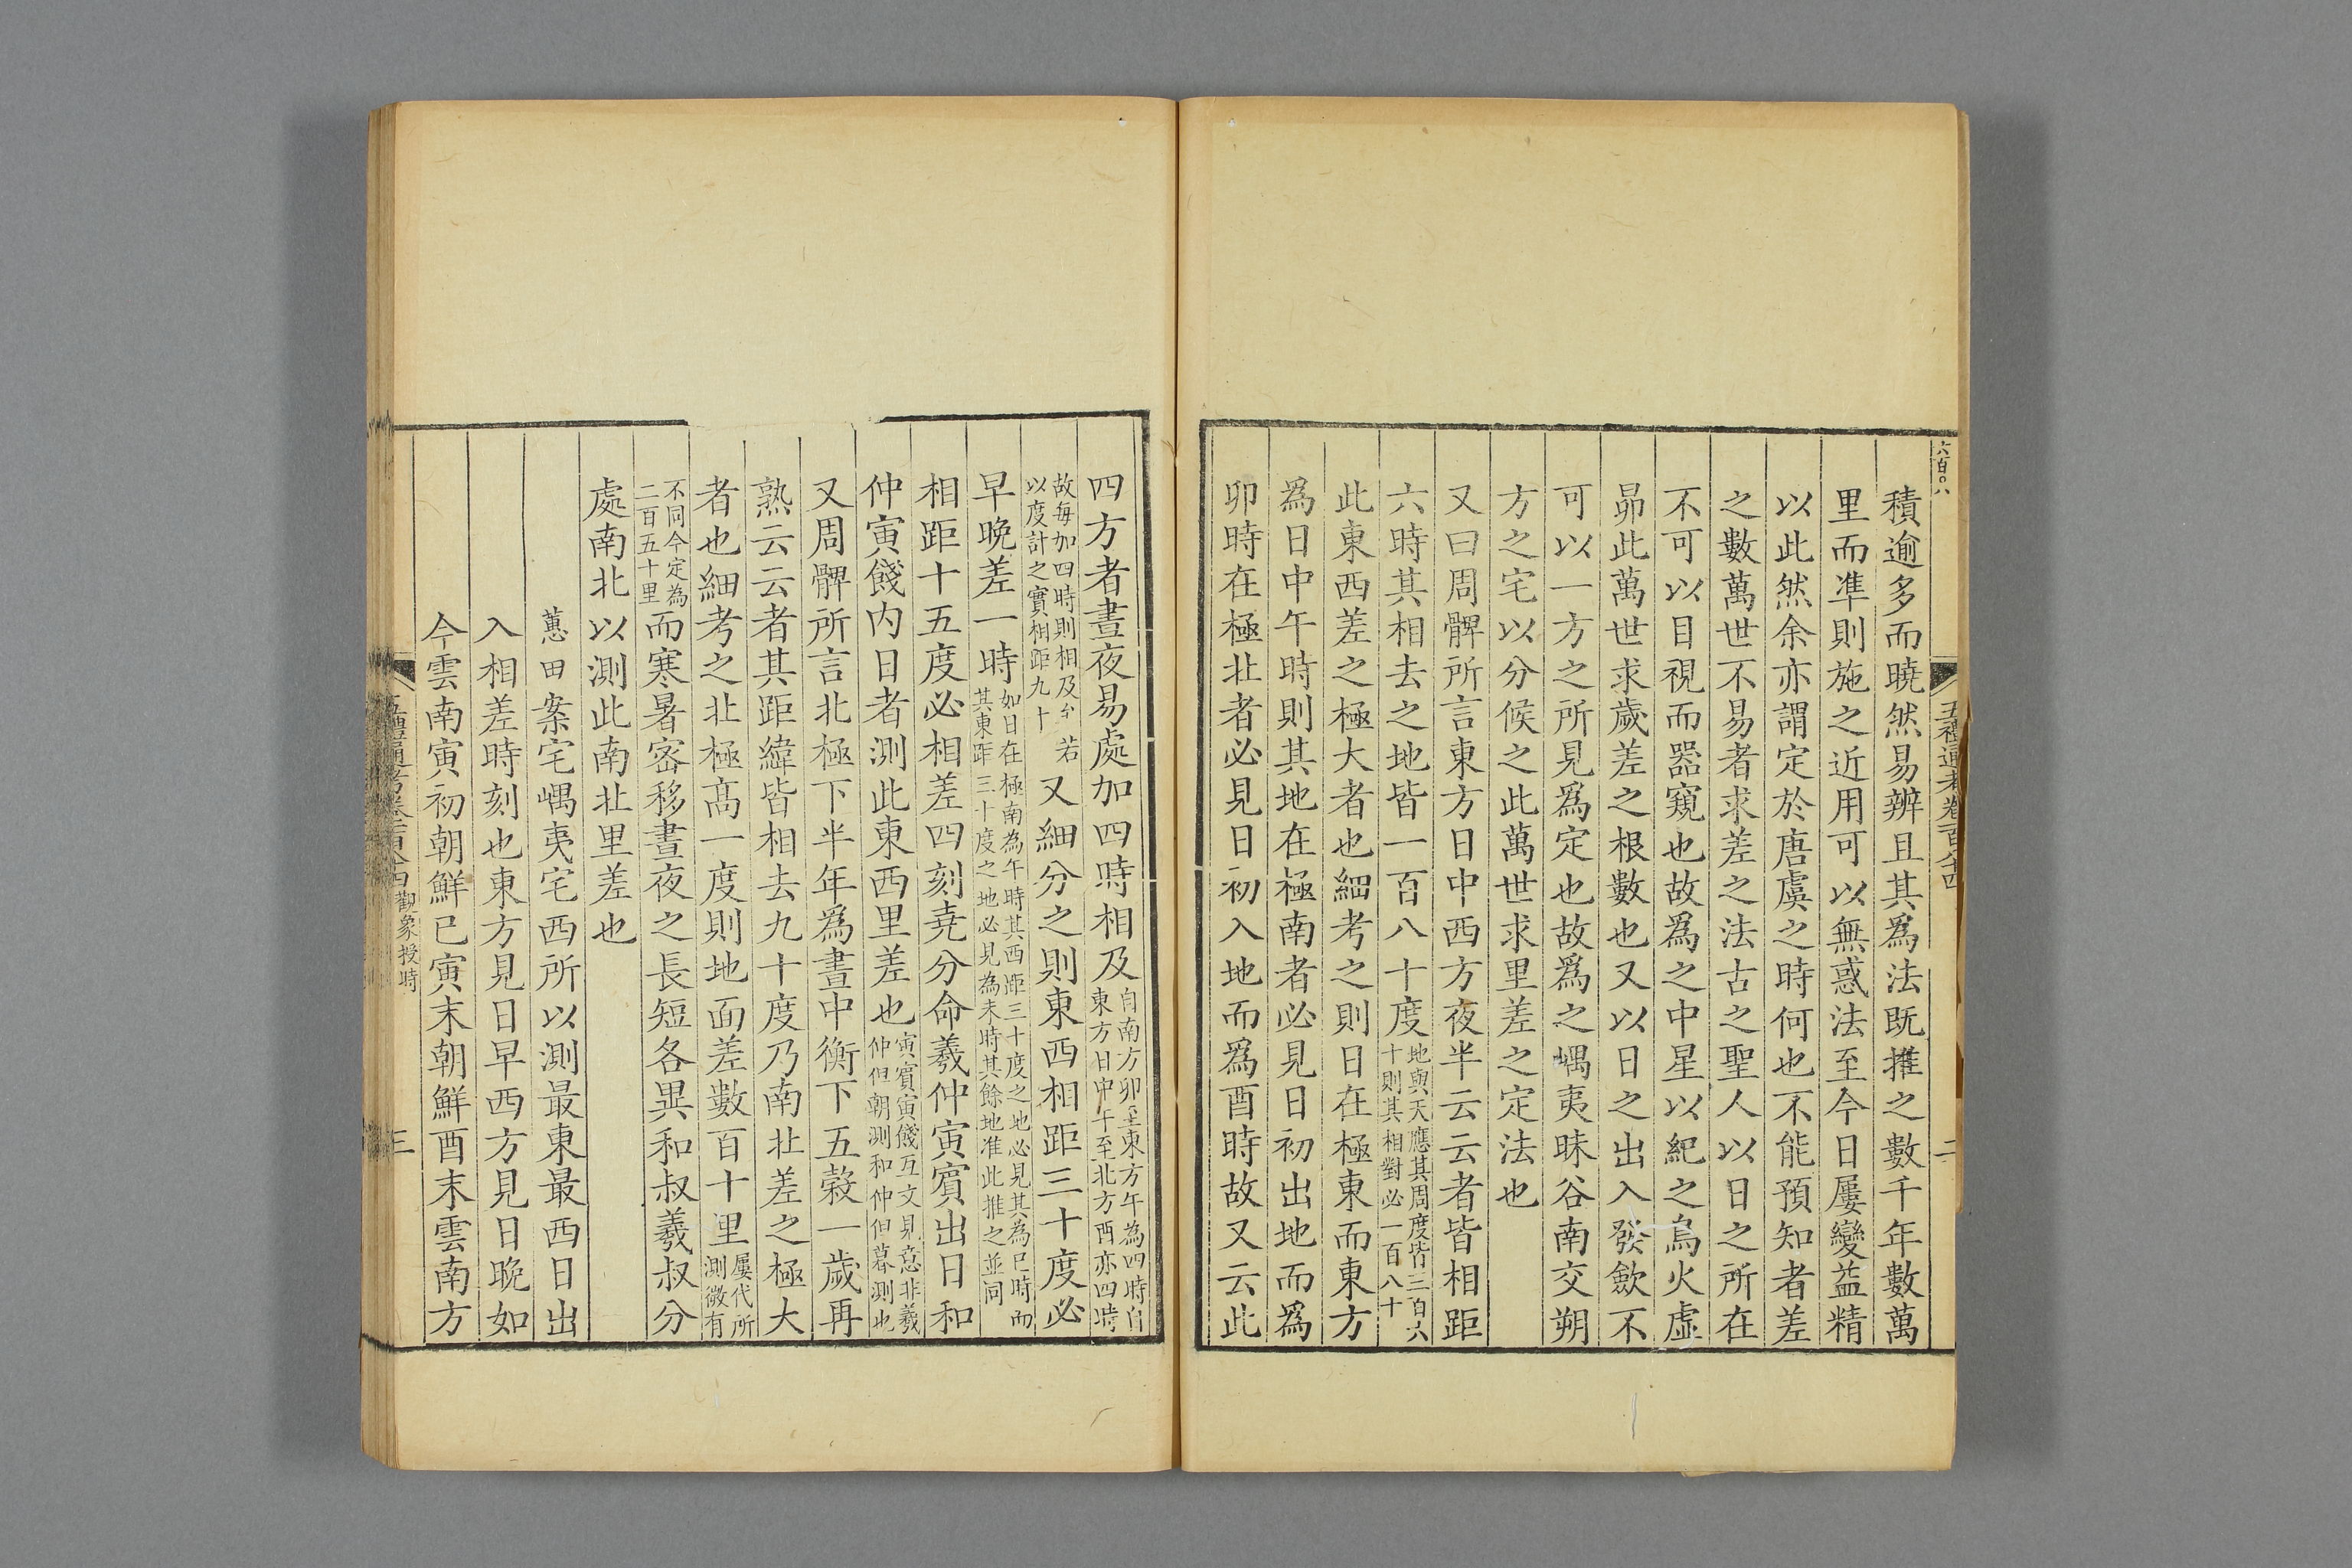 六百〇八
五禮通考卷一百八十四
二
積逾多而曉然易辨且其爲法既推之數千年數萬
里而凖則施之近用可以無惑法至今日屢變益精
以此然余亦謂定於唐虞之時何也不能預知者差
之數萬世不易者求差之法古之聖人以日之所在
不可以目視而器窺也故爲之中星以紀之鳥火虛
昴此萬世求歲差之根數也又以日之出入發歛不
可以一方之所見爲定也故爲之嵎夷昧谷南交朔
方之宅以分候之此萬世求里差之定法也
又曰周髀所言東方日中西方夜半云云者皆相距
六時其相去之地皆一百八十度地與天應其周度皆三百六
十則其相對必一百八十
此東西差之極大者也細考之則日在極東而東方
爲日中午時則其地在極南者必見日初出地而爲
卯時在極北者必見日初入地而爲酉時故又云此
四方者晝夜易處加四時相及自南方卯至東方午為四時自
東方日中午至北方酉亦四時
故每加四時則相及分若
以度計之實相距九十
又細分之則東西相距三十度必
早晚差一時如日在極南為午時其西距三十度之地必見其為巳時而
其東距三十度之地必見為未時其餘地准此推之並同
相距十五度必相差四刻堯分命羲仲寅賓出日和
仲寅餞内日者測此東西里差也寅賓寅餞互文見意非羲
仲但朝測和仲但暮測也
又周髀所言北極下半年爲晝中衡下五穀一歲再
熟云云者其距緯皆相去九十度乃南北差之極大
者也細考之北極髙一度則地面差數百十里屢代所
測微有
不同今定為
二百五十里
而寒暑宻移晝夜之長短各異和叔羲叔分
處南北以測此南北里差也
蕙田案宅嵎夷宅西所以測最東最西日出
入相差時刻也東方見日早西方見日晚如
今雲南寅初朝鮮已寅末朝鮮酉末雲南方
觀象授時
三